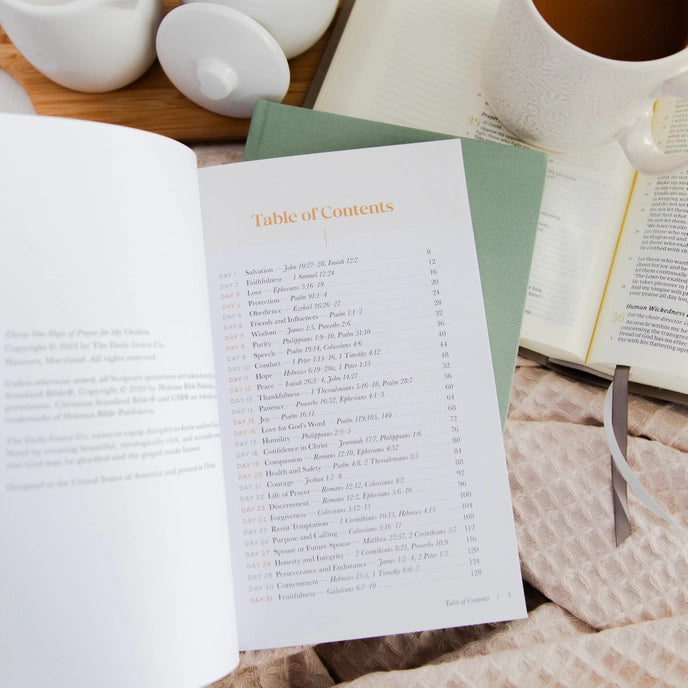 Thirty-One Days of Prayer for My Children
Copyright © 2023 by The Daily Grace Co.
Hanover, Maryland. All rights reserved.
Unless otherwise noted, all Scripture quotations are
Standard Bible®, Copyright © 2020 by Holman Bible
permission. Christian Standard Bible® and CSB® are
of Holman Bible Publishers.
The Daily Grace Co. exists to equip disciples to know and
Word by creating beautiful, theologically rich, and
that God may be glorified and the gospel made known.
Designed in the United States of America and printed in
Table of Contents
DAY 1 Salvation — John 10:27–28, Isaiah 12:2 8
DAY 2 Faithfulness — 1 Samuel 12:24 12
DAY 3 Love — Ephesians 3:16–19 16
DAY 4 Protection — Psalm 91:1–4 20
DAY 5 Obedience — Ezekiel 36:26–27 24
DAY 6 Friends and Influences — Psalm 1:1–2 28
DAY 7 Wisdom — James 1:5, Proverbs 2:6 32
DAY 8 Purity — Philippians 1:9–10, Psalm 51:10 36
DAY 9 Speech — Psalm 19:14, Ephesians 4:6 40
DAY 10 Conduct — 1 Peter 1:15–16, 1 Timothy 4:12 44
DAY 11 Hope — Hebrews 6:19–20a, 1 Peter 1:3 48
DAY 12 Peace — Isaiah 26:3–4, John 14:27 52
DAY 13 Thankfulness — 1 Thessalonians 5:16–18, Psalm 28:7 56
DAY 14 Patience — Proverbs 16:32, Ephesians 4:1–3 60
DAY 15 Joy — Psalm 16:11 64
DAY 16 Love for God's Word — Psalm 119:105, 140 68
DAY 17 Humility — Philippians 2:3–5 72
DAY 18 Confidence in Christ — Jeremiah 17:7, Philippians 1:6 76
DAY 19 Compassion — Romans 12:10, Ephesians 4:32 80
DAY 20 Health and Safety — Psalm 4:8, 2 Thessalonians 3:3 84
DAY 21 Courage — Joshua 1:7–8 88
DAY 22 Life of Prayer — Romans 12:12, Colossians 4:2 92
DAY 23 Discernment — Romans 12:2, Ephesians 5:6–10 96
DAY 24 Forgiveness — Colossians 3:12–13 100
DAY 25 Resist Temptation — 1 Corinthians 10:13, Hebrews 4:15 104
DAY 26 Purpose and Calling — Colossians 3:16–17 108
DAY 27 Spouse or Future Spouse — Matthew 22:37, 2 Corinthians 5:7 112
DAY 28 Honesty and Integrity — 2 Corinthians 8:21, Proverbs 10:9 116
DAY 29 Perseverance and Endurance — James 1:2–4, 2 Peter 1:3 120
DAY 30 Contentment — Hebrews 13:5, 1 Timothy 6:6–7 124
DAY 31 Fruitfulness — Galatians 6:7–10 128
Table of Contents / 5
35
Prayer
Of David.
36
Human Wickedness
For the choir director
An oracle within my
concerning the
Dread of God has no
For with his flattering